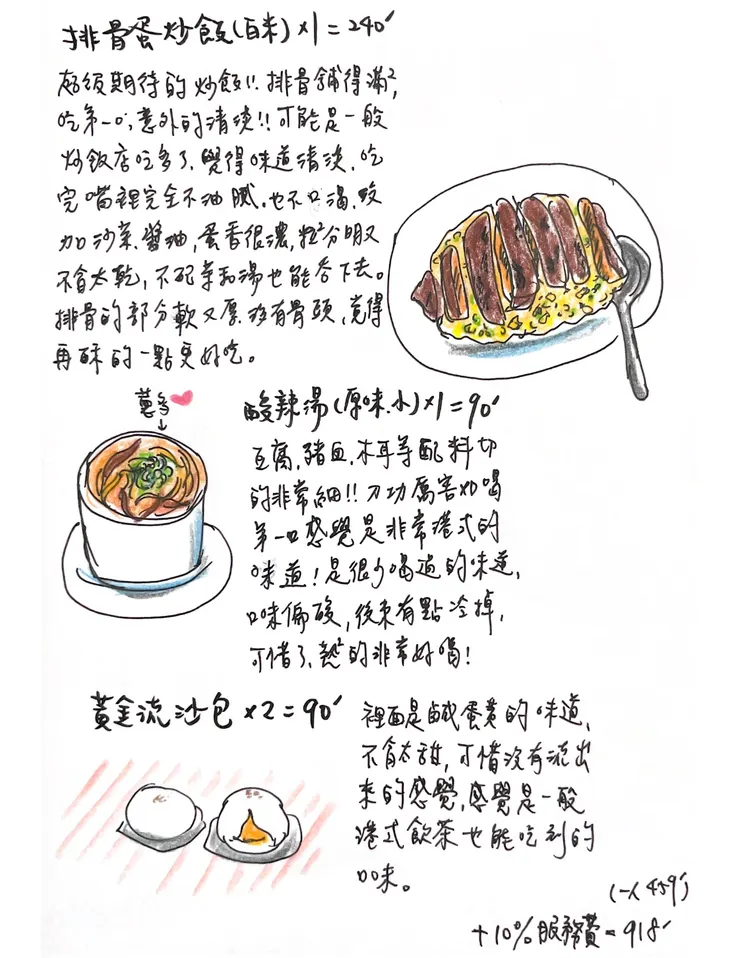 排骨蛋炒飯(白米)×1=240'
超級期待的炒飯!!排骨舖得滿²,
吃第一口,意外的清淡!!可能是一般
炒飯店吃多了,覺得味道清淡,吃
完嘴裡完全不油膩,也不口渴,
加沙茶醬油,蛋香很濃,粒²分明又
不會太乾,不配茶和湯也能吞下去。
排骨的部分軟又厚,沒有骨頭,覺得
再酥的一點更好吃。
蔥多
酸辣湯(原味.小)×1=90'
豆腐,豬血,木耳等配料切
的非常細!!刀功厲害
第一口感覺是非常港式的
味道!是很少喝過的味道,
口味偏酸,後來有點冷掉,
可惜了,熱²的非常好喝!
黃金流沙包×2=90'
裡面是鹹蛋黃的味道,
不會太甜,可惜沒有流出
來的感覺,感覺是一般
港式飲茶也能吃到的
口味。
(一人459')
+10%服務費=918'